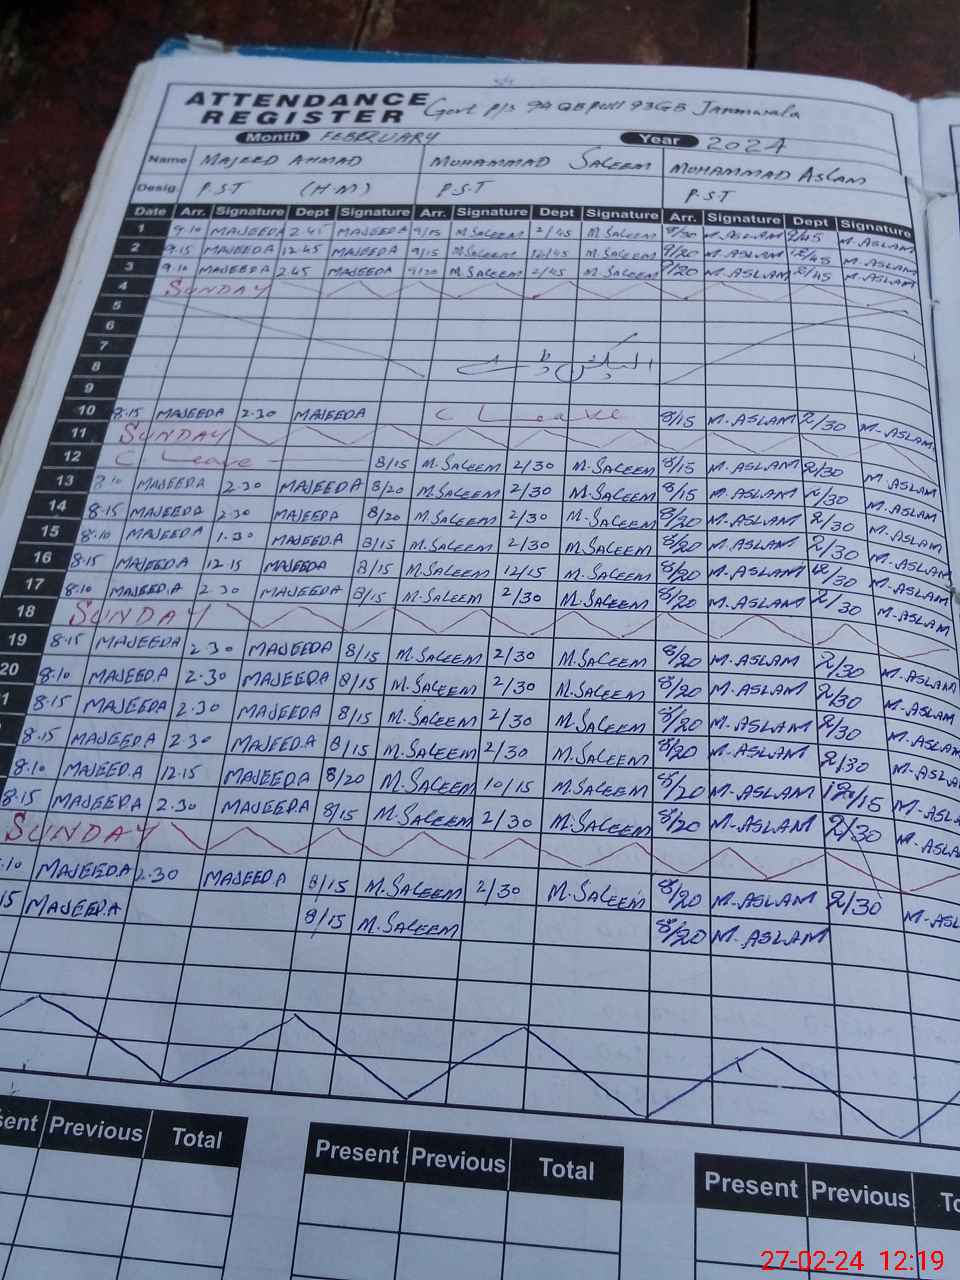 ATTENDANCE REGISTER Govt P/S 93GB Janmiwala
Month FEBERUARY Year 2024
Name MAJEED AHMAD MUHAMMAD SALEEM MUHAMMAD ASLAM
Desig. P.S.T (H.M) P.S.T P.S.T
Date Arr. Signature Dept Signature Arr. Signature Dept Signature Arr. Signature Dept Signature
1 9.10 MAJEEDA 2.45 MAJEEDA 9/15 M.SALEEM 2/45 M.SALEEM M.ASLAM 2/45 M.ASLAM
2 9.15 MAJEEDA 12.45 MAJEEDA 9/15 M.SALEEM 12/45 M.SALEEM 9/20 M.ASLAM 12/45 M.ASLAM
3 9.10 MAJEEDA 2.45 MAJEEDA 9/20 M.SALEEM 2/45 M.SALEEM 9/20 M.ASLAM 2/45 M.ASLAM
4 SUNDAY
5
6
7
8
9
10 8.15 MAJEEDA 2.30 MAJEEDA C Leave 8/15 M.ASLAM 2/30 M.ASLAM
11 SUNDAY
12 C Leave 8/15 M.SALEEM 2/30 M.SALEEM 8/15 M.ASLAM 2/30 M.ASLAM
13 8.10 MAJEEDA 2.30 MAJEEDA 8/20 M.SALEEM 2/30 M.SALEEM 8/15 M.ASLAM 2/30 M.ASLAM
14 8.15 MAJEEDA 2.30 MAJEEDA 8/20 M.SALEEM 2/30 M.SALEEM 8/20 M.ASLAM 2/30 M.ASLAM
15 8.10 MAJEEDA 1.30 MAJEED.A 8/15 M.SALEEM 2/30 M.SALEEM 8/20 M.ASLAM 2/30 M.ASLAM
16 8.15 MAJEED.A 12.15 MAJEEDA 8/15 M.SALEEM 12/15 M.SALEEM 8/20 M.ASLAM M.ASLAM
17 8.10 MAJEED.A 2.30 MAJEEDA 8/15 M.SALEEM 2/30 M.SALEEM 8/20 M.ASLAM 2/30 M.ASLAM
18 SUNDAY
19 8.15 MAJEEDA 2.30 MAJEEDA 8/15 M.SALEEM 2/30 M.SALEEM 8/20 M.ASLAM 2/30 M.ASLAM
20 8.10 MAJEED.A 2.30 MAJEEDA 8/15 M.SALEEM 2/30 M.SALEEM 8/20 M.ASLAM 2/30 M.ASLAM
1 8.15 MAJEEDA 2.30 MAJEEDA 8/15 M.SALEEM 2/30 M.SALEEM 8/20 M.ASLAM 2/30 M.ASLAM
8.15 MAJEEDA 2.30 MAJEED.A 8/15 M.SALEEM 2/30 M.SALEEM 8/20 M.ASLAM 2/30 M.ASLA
8.10 MAJEED.A 12.15 MAJEEDA 8/20 M.SALEEM 10/15 M.SALEEM 8/20 M.ASLAM 12/15 M.ASLA
8.15 MAJEEDA 2.30 MAJEEDA 8/15 M.SALEEM 2/30 M.SALEEM 8/20 M.ASLAM 2/30 M.ASLA
SUNDAY
.10 MAJEEDA 2.30 MAJEED.A 8/15 M.SALEEM 2/30 M.SALEEM 8/20 M.ASLAM 2/30 M.ASL
15 MAJEED.A 8/15 M.SALEEM 8/20 M.ASLAM
sent Previous Total Present Previous Total Present Previous To
27-02-24 12:19